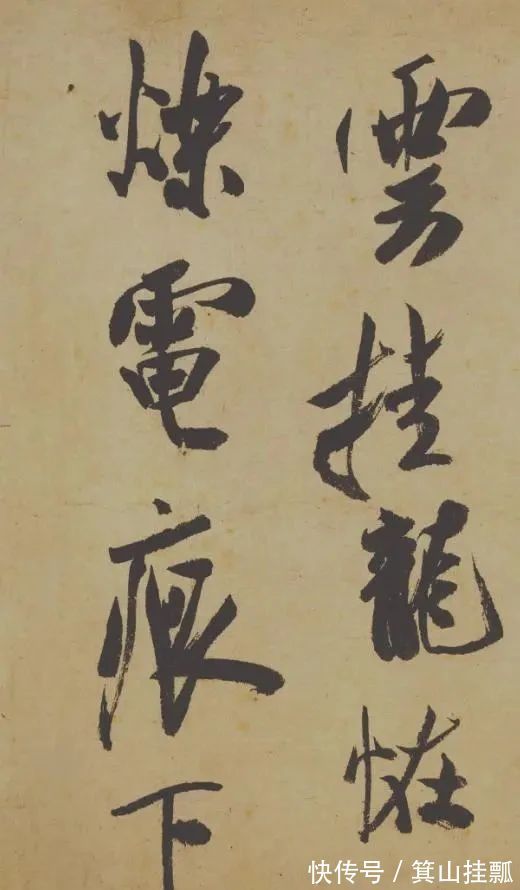 雲挂龍恠
爍電痕下
快传号 / 箕山挂瓢